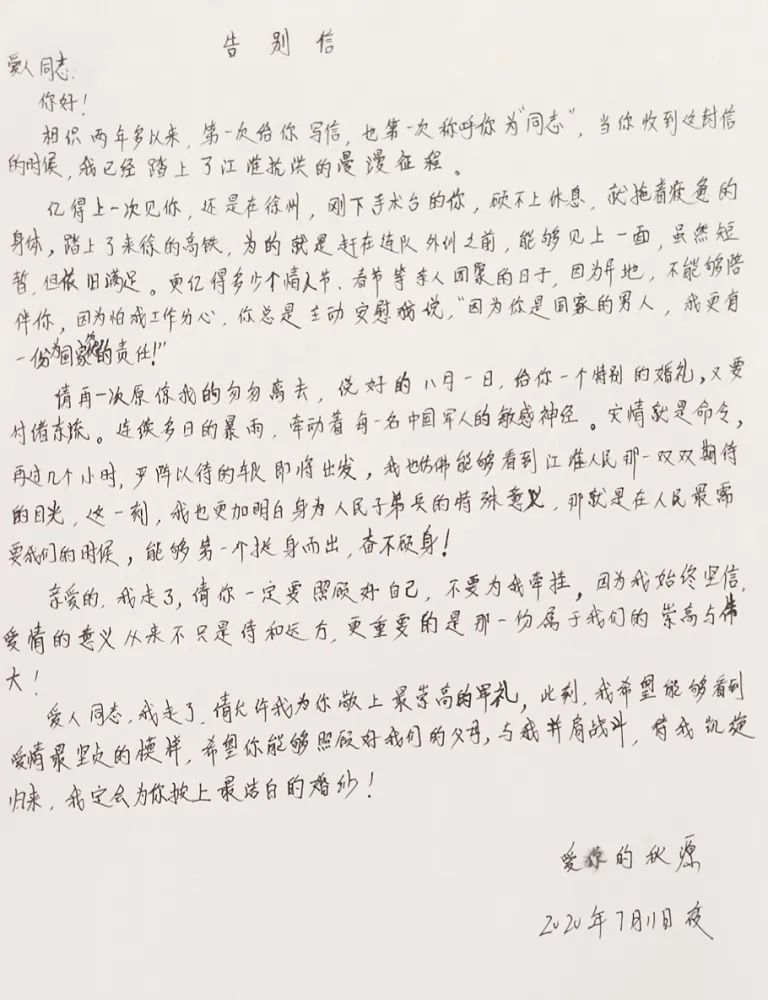 告别信
爱人同志:
你好!
相识两年多以来,第一次给你写信,也第一次称呼你为"同志",当你收到这封信
的时候,我已经踏上了江淮抗洪的漫漫征程。
忆得上一次见你,还是在徐州,刚下手术台的你,顾不上休息,就拖着疲惫的
身体,踏上了来徐的高铁,为的就是赶在连队外训之前,能够见上一面,虽然短
暂,但依旧满足。更忆得多少个情人节、春节等亲人团聚的日子,因为异地,不能够陪
伴你,因为怕我工作分心,你总是主动安慰我说,"因为你是国家的男人,我更有
一份为国家的责任!"
请再一次原谅我的匆匆离去,说好的八月一日,给你一个特别的婚礼,又要
付诸东流。连续多日的暴雨,牵动着每一名中国军人的敏感神经。灾情就是命令,
再过几个小时,严阵以待的车队即将出发,我也仿佛能够看到江淮人民那一双双期待
的目光,这一刻,我也更加明白身为人民子弟兵的特殊意义,那就是在人民最需
要我们的时候,能够第一个挺身而出,奋不顾身!
亲爱的,我走了,请你一定要照顾好自己,不要为我牵挂,因为我始终坚信,
爱情的意义从来不只是诗和远方,更重要的是那一份属于我们的崇高与伟
大!
爱人同志,我走了,请允许我为你敬上最崇高的军礼,此刻,我希望能够看到
爱情最坚贞的模样,希望你能够照顾好我们的父母,与我并肩战斗,待我凯旋
归来,我定会为你披上最洁白的婚纱!
爱你的秋源
2020年7月11日夜